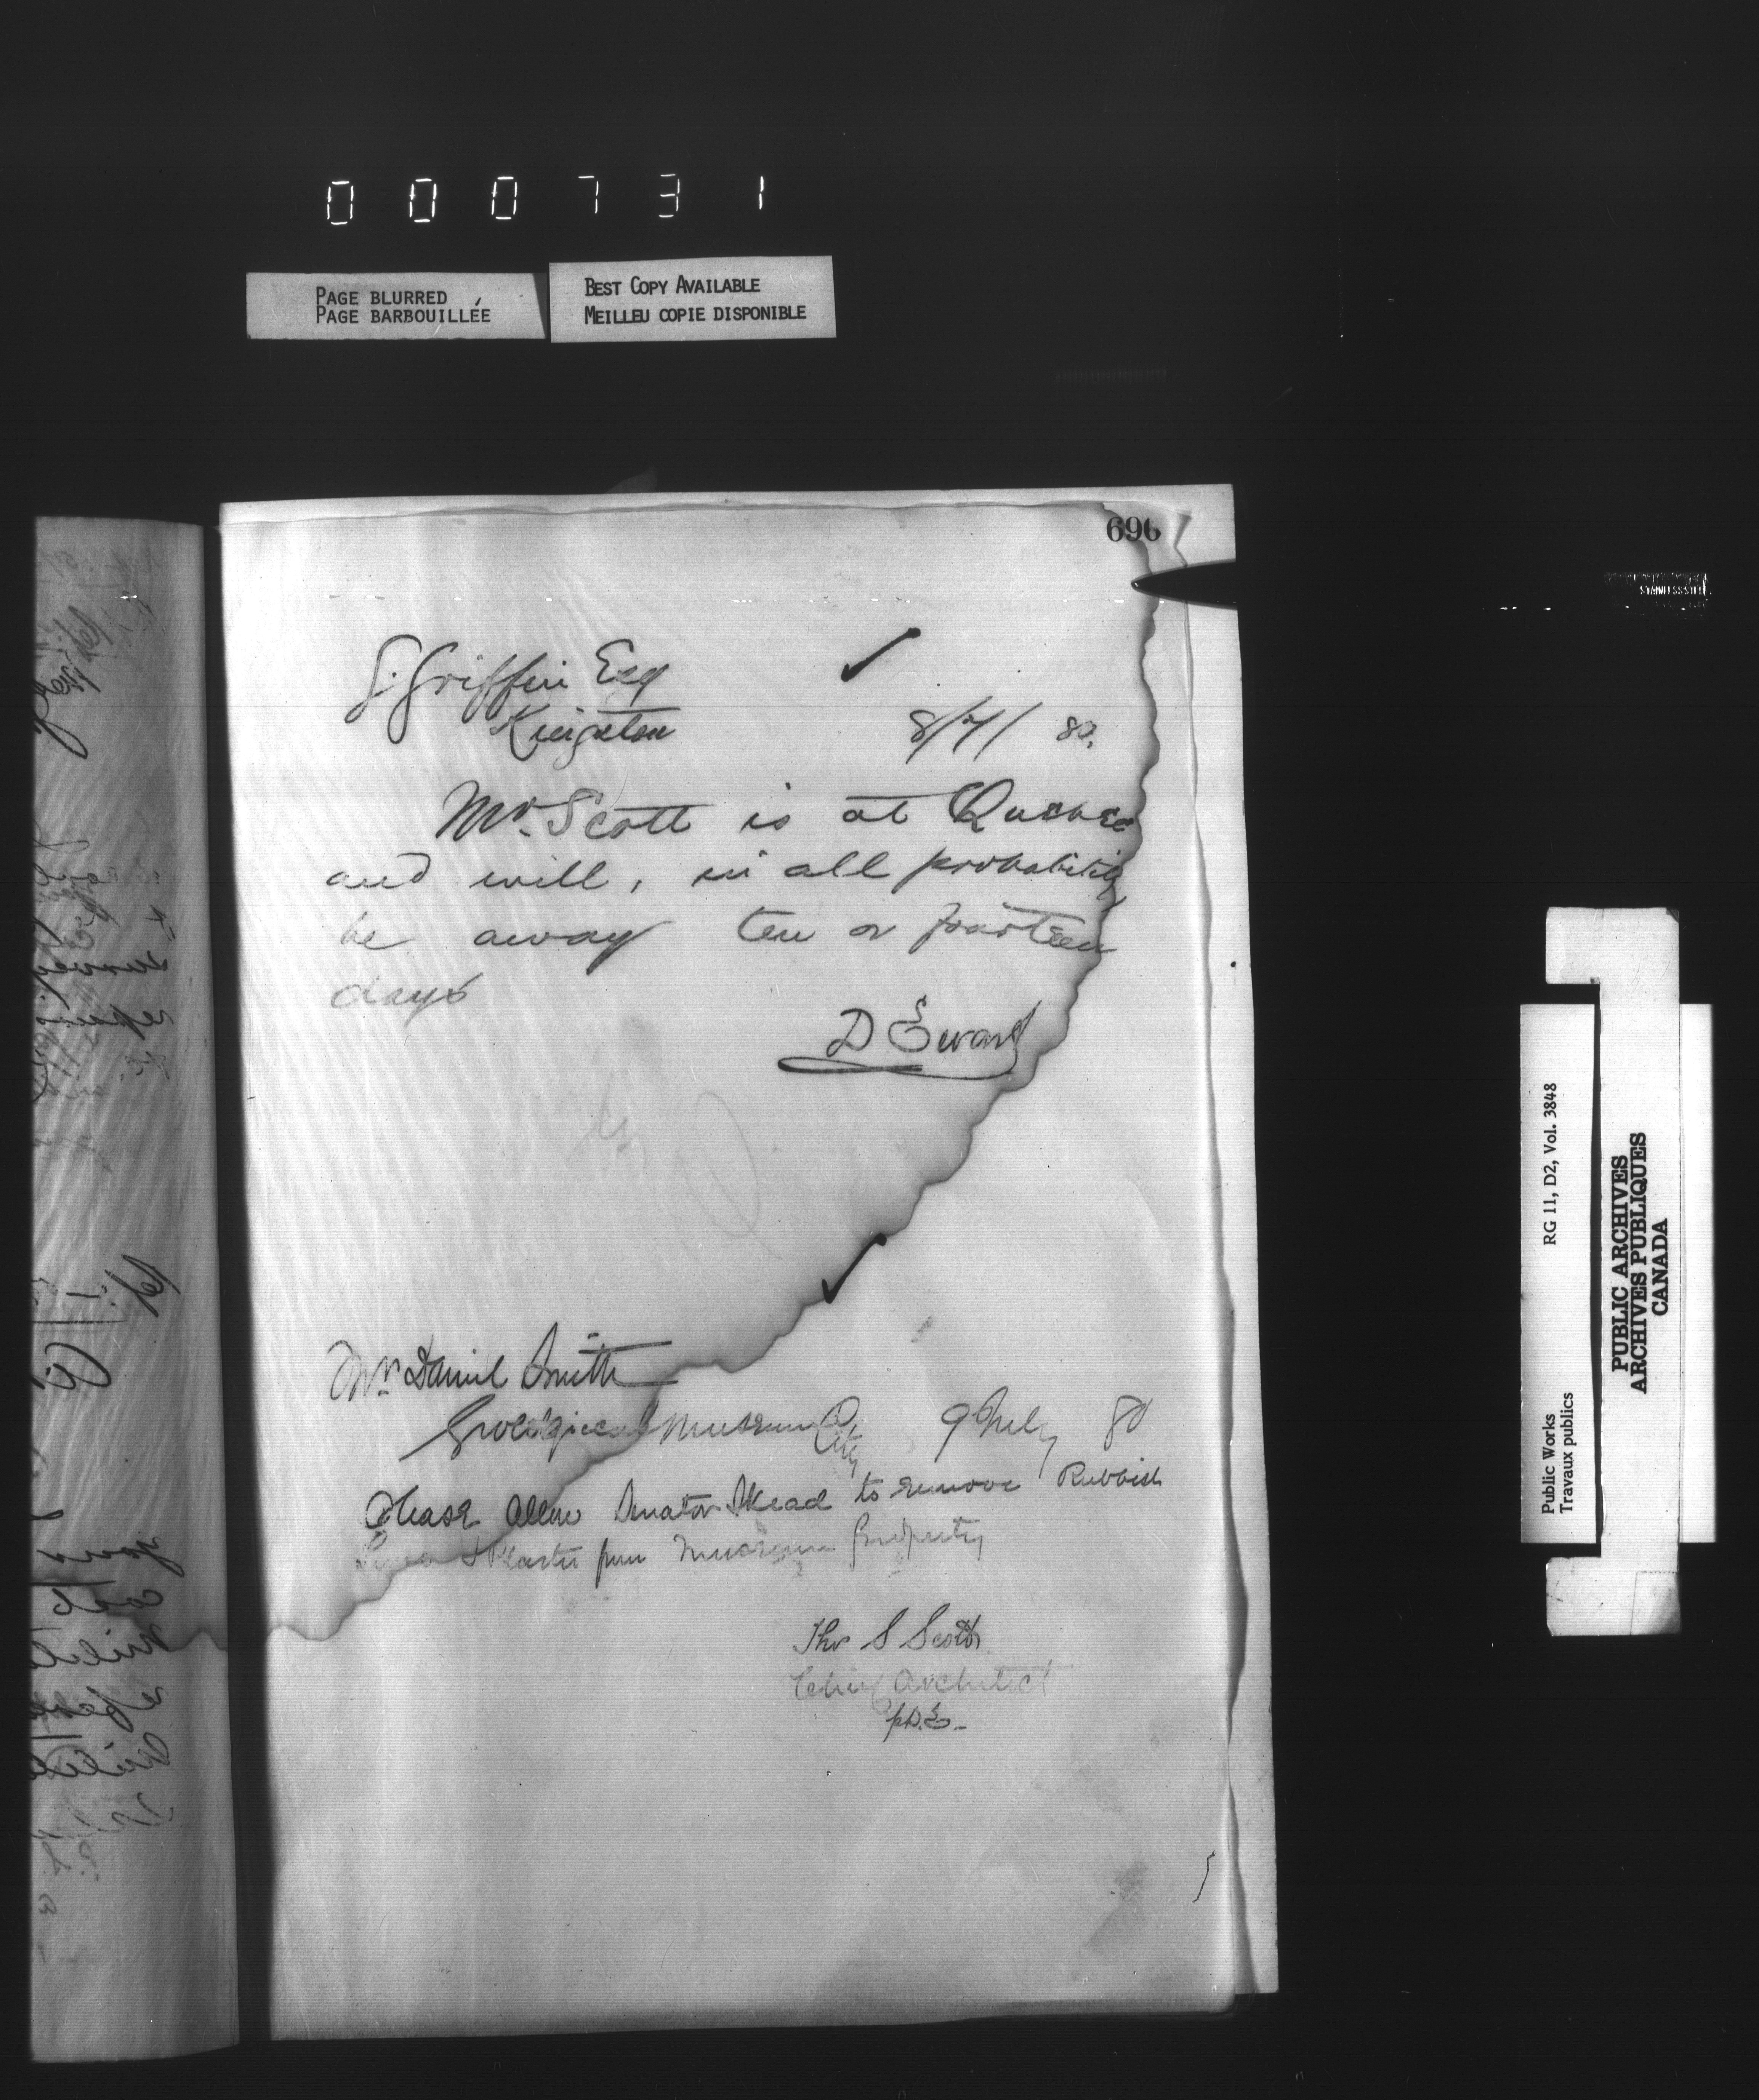 000731
PAGE BLURRED
PAGE BARBOUILLÉE
BEST COPY AVAILABLE
MEILLEU COPIE DISPONIBLE
696
S. Griffin Esq
Kingston
8/7/ 80.
Mr. Scott is at Quebec
and will, in all probability
be away ten or fourteen
days
D Ewart
Mr. Daniel Smith
Geological Museum City 9 July 80
Please Allow Senator Skead to remove Rubbish
& Plaster from Museum Property
Thos S Scott
Chief Architect
p D.E.
STAINLESS STEEL
Public Works RG 11, D2, Vol. 3848
Travaux publics
PUBLIC ARCHIVES
ARCHIVES PUBLIQUES
CANADA